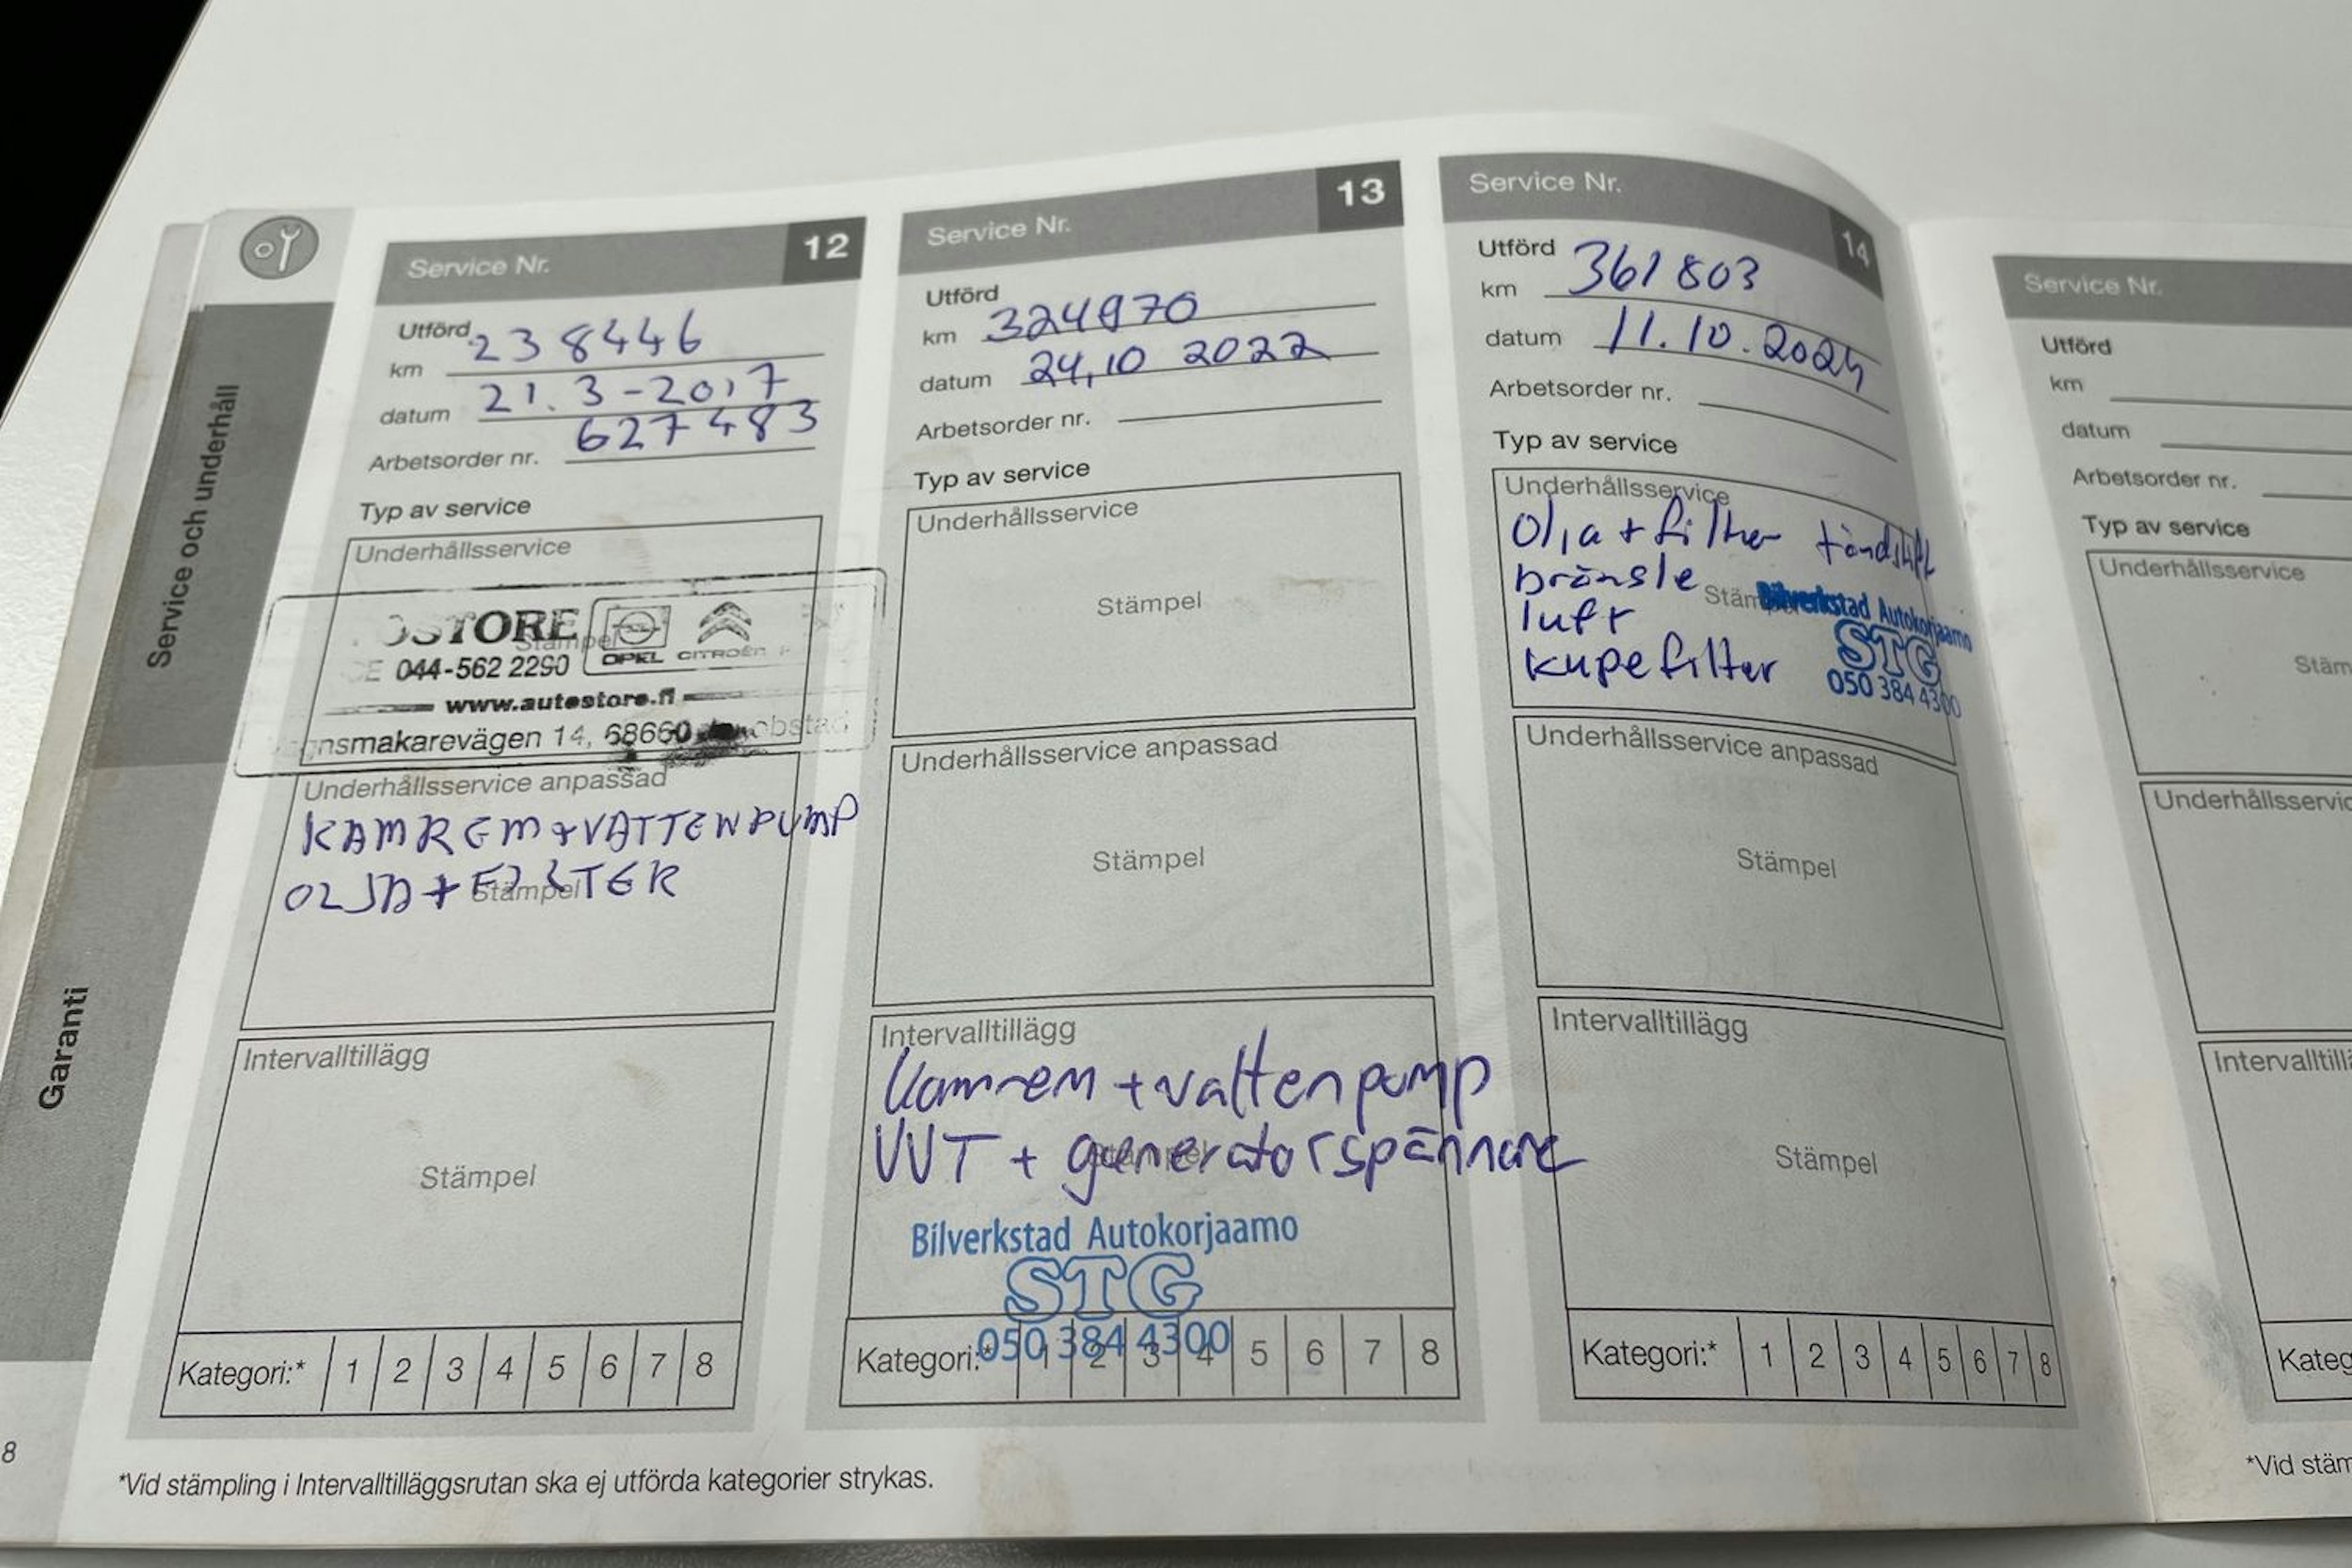 Service och underhåll
Garanti
8
Service Nr. 12
Utförd
km 238446
datum 21.3-2017
Arbetsorder nr. 627483
Typ av service
Underhållsservice
Stämpel
OSTORE
OPEL CITROËN
044-562 2290
www.autostore.fi
nsmakarevägen 14, 68660
Underhållsservice anpassad
KAMREM+VATTENPUMP
OLJA+FILTER
Stämpel
Intervalltillägg
Stämpel
Kategori:* 1 2 3 4 5 6 7 8
Service Nr. 13
Utförd
km 324970
datum 24,10 2022
Arbetsorder nr.
Typ av service
Underhållsservice
Stämpel
Underhållsservice anpassad
Stämpel
Intervalltillägg
Kamrem + vattenpump
VVT + generatorspännare
Bilverkstad Autokorjaamo
STG
050 384 4300
Kategori:* 1 2 3 4 5 6 7 8
Service Nr. 14
Utförd
km 361803
datum 11.10.2024
Arbetsorder nr.
Typ av service
Underhållsservice
Olja + filter tändstift
bränsle
luft
kupefilter
Bilverkstad Autokorjaamo
STG
050 384 4300
Underhållsservice anpassad
Stämpel
Intervalltillägg
Stämpel
Kategori:* 1 2 3 4 5 6 7 8
*Vid stämpling i Intervalltilläggsrutan ska ej utförda kategorier strykas.
Service Nr.
Utförd
km
datum
Arbetsorder nr.
Typ av service
Underhållsservice
Stäm
Underhållsservic
Intervalltill
Kateg
*Vid stäm